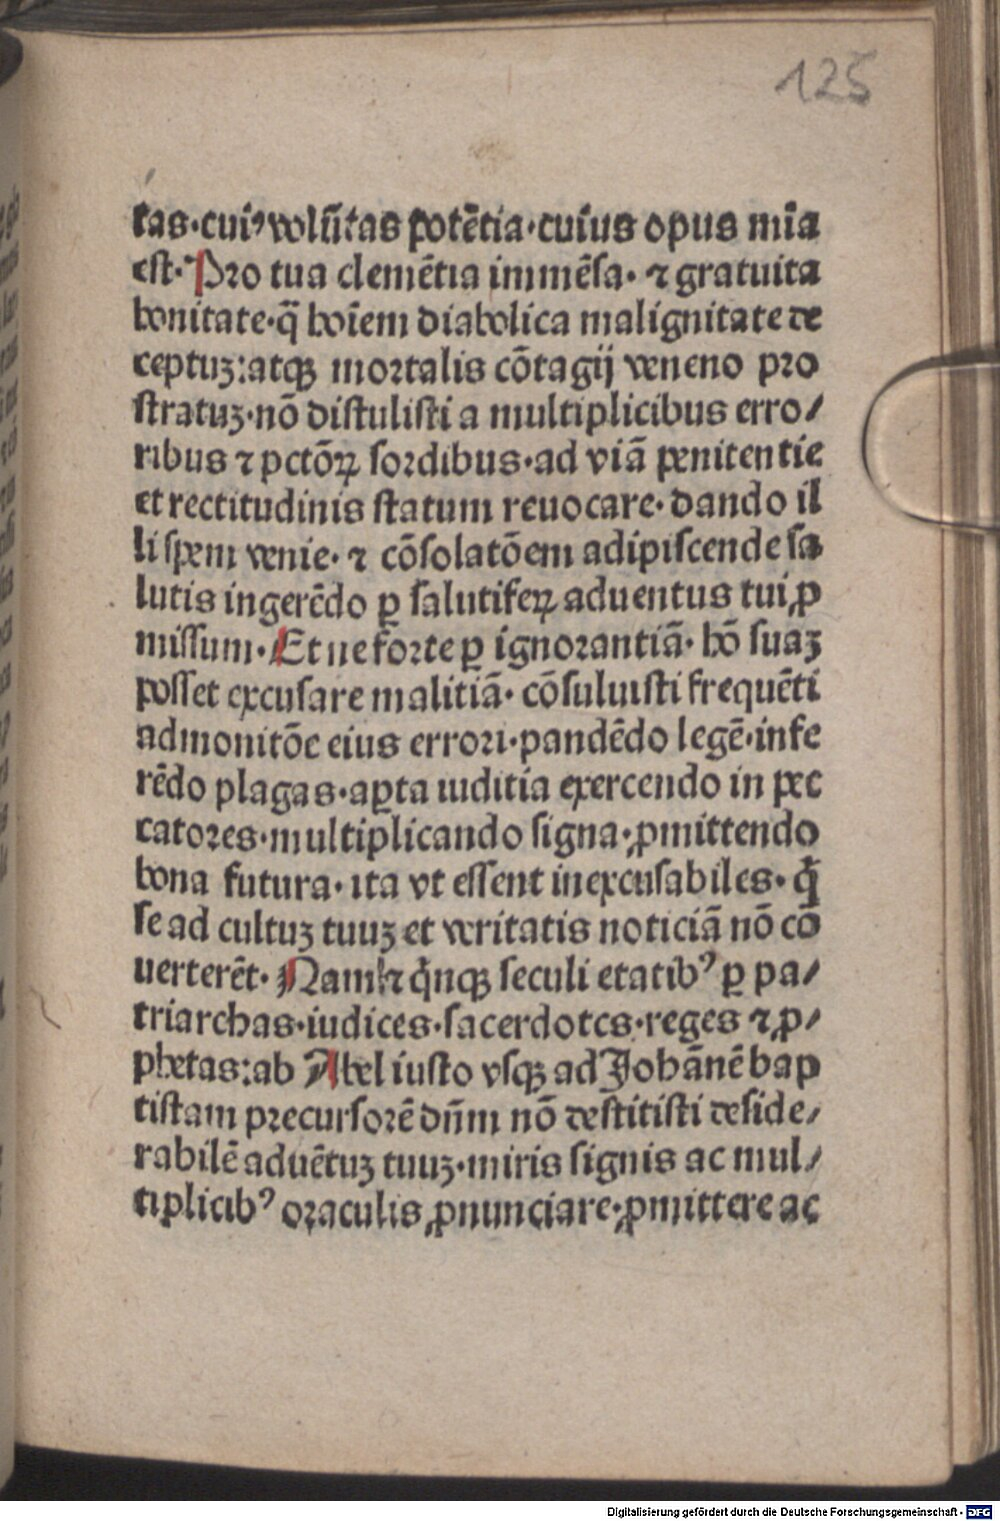 125
tas·cuiꝰ volūtas potētia·cuius opus mīa
est·Pro tua clemētia immēsa·⁊ gratuita
bonitate·q̄ hoīem diabolica malignitate de
ceptuꝫ:atqꝫ mortalis cōtagij veneno pro
stratuꝫ·nō distulisti a multiplicibus erro/
ribus ⁊ pctōꝝ sordibus·ad viā penitentie
et rectitudinis statum reuocare·dando il
li spem venie·⁊ cōsolatōem adipiscende sa
lutis ingerēdo ꝑ salutifeꝝ aduentus tui ꝓ
missum·Et ne forte ꝑ ignorantiā·hō suaꝫ
posset excusare malitiā·cōsuluisti frequēti
admonitōe eius errori·pandēdo legē·infe
rēdo plagas·aꝑta iuditia exercendo in pec
catores·multiplicando signa·ꝓmittendo
bona futura·ita vt essent inexcusabiles·q̇
se ad cultuꝫ tuuꝫ et veritatis noticiā nō cō
uerterēt·Nam ⁊ q̇nqꝫ seculi etatibꝰ ꝑ pa/
triarchas·iudices·sacerdotes·reges ⁊ ꝓ/
phetas:ab Abel iusto vsqꝫ ad Johānē bap
tistam precursorē dn̄m nō destitisti deside/
rabilē aduētuꝫ tuuꝫ·miris signis ac mul/
tiplicibꝰ oraculis ꝓnunciare·ꝓmittere ac
Digitalisierung gefördert durch die Deutsche Forschungsgemeinschaft - DFG